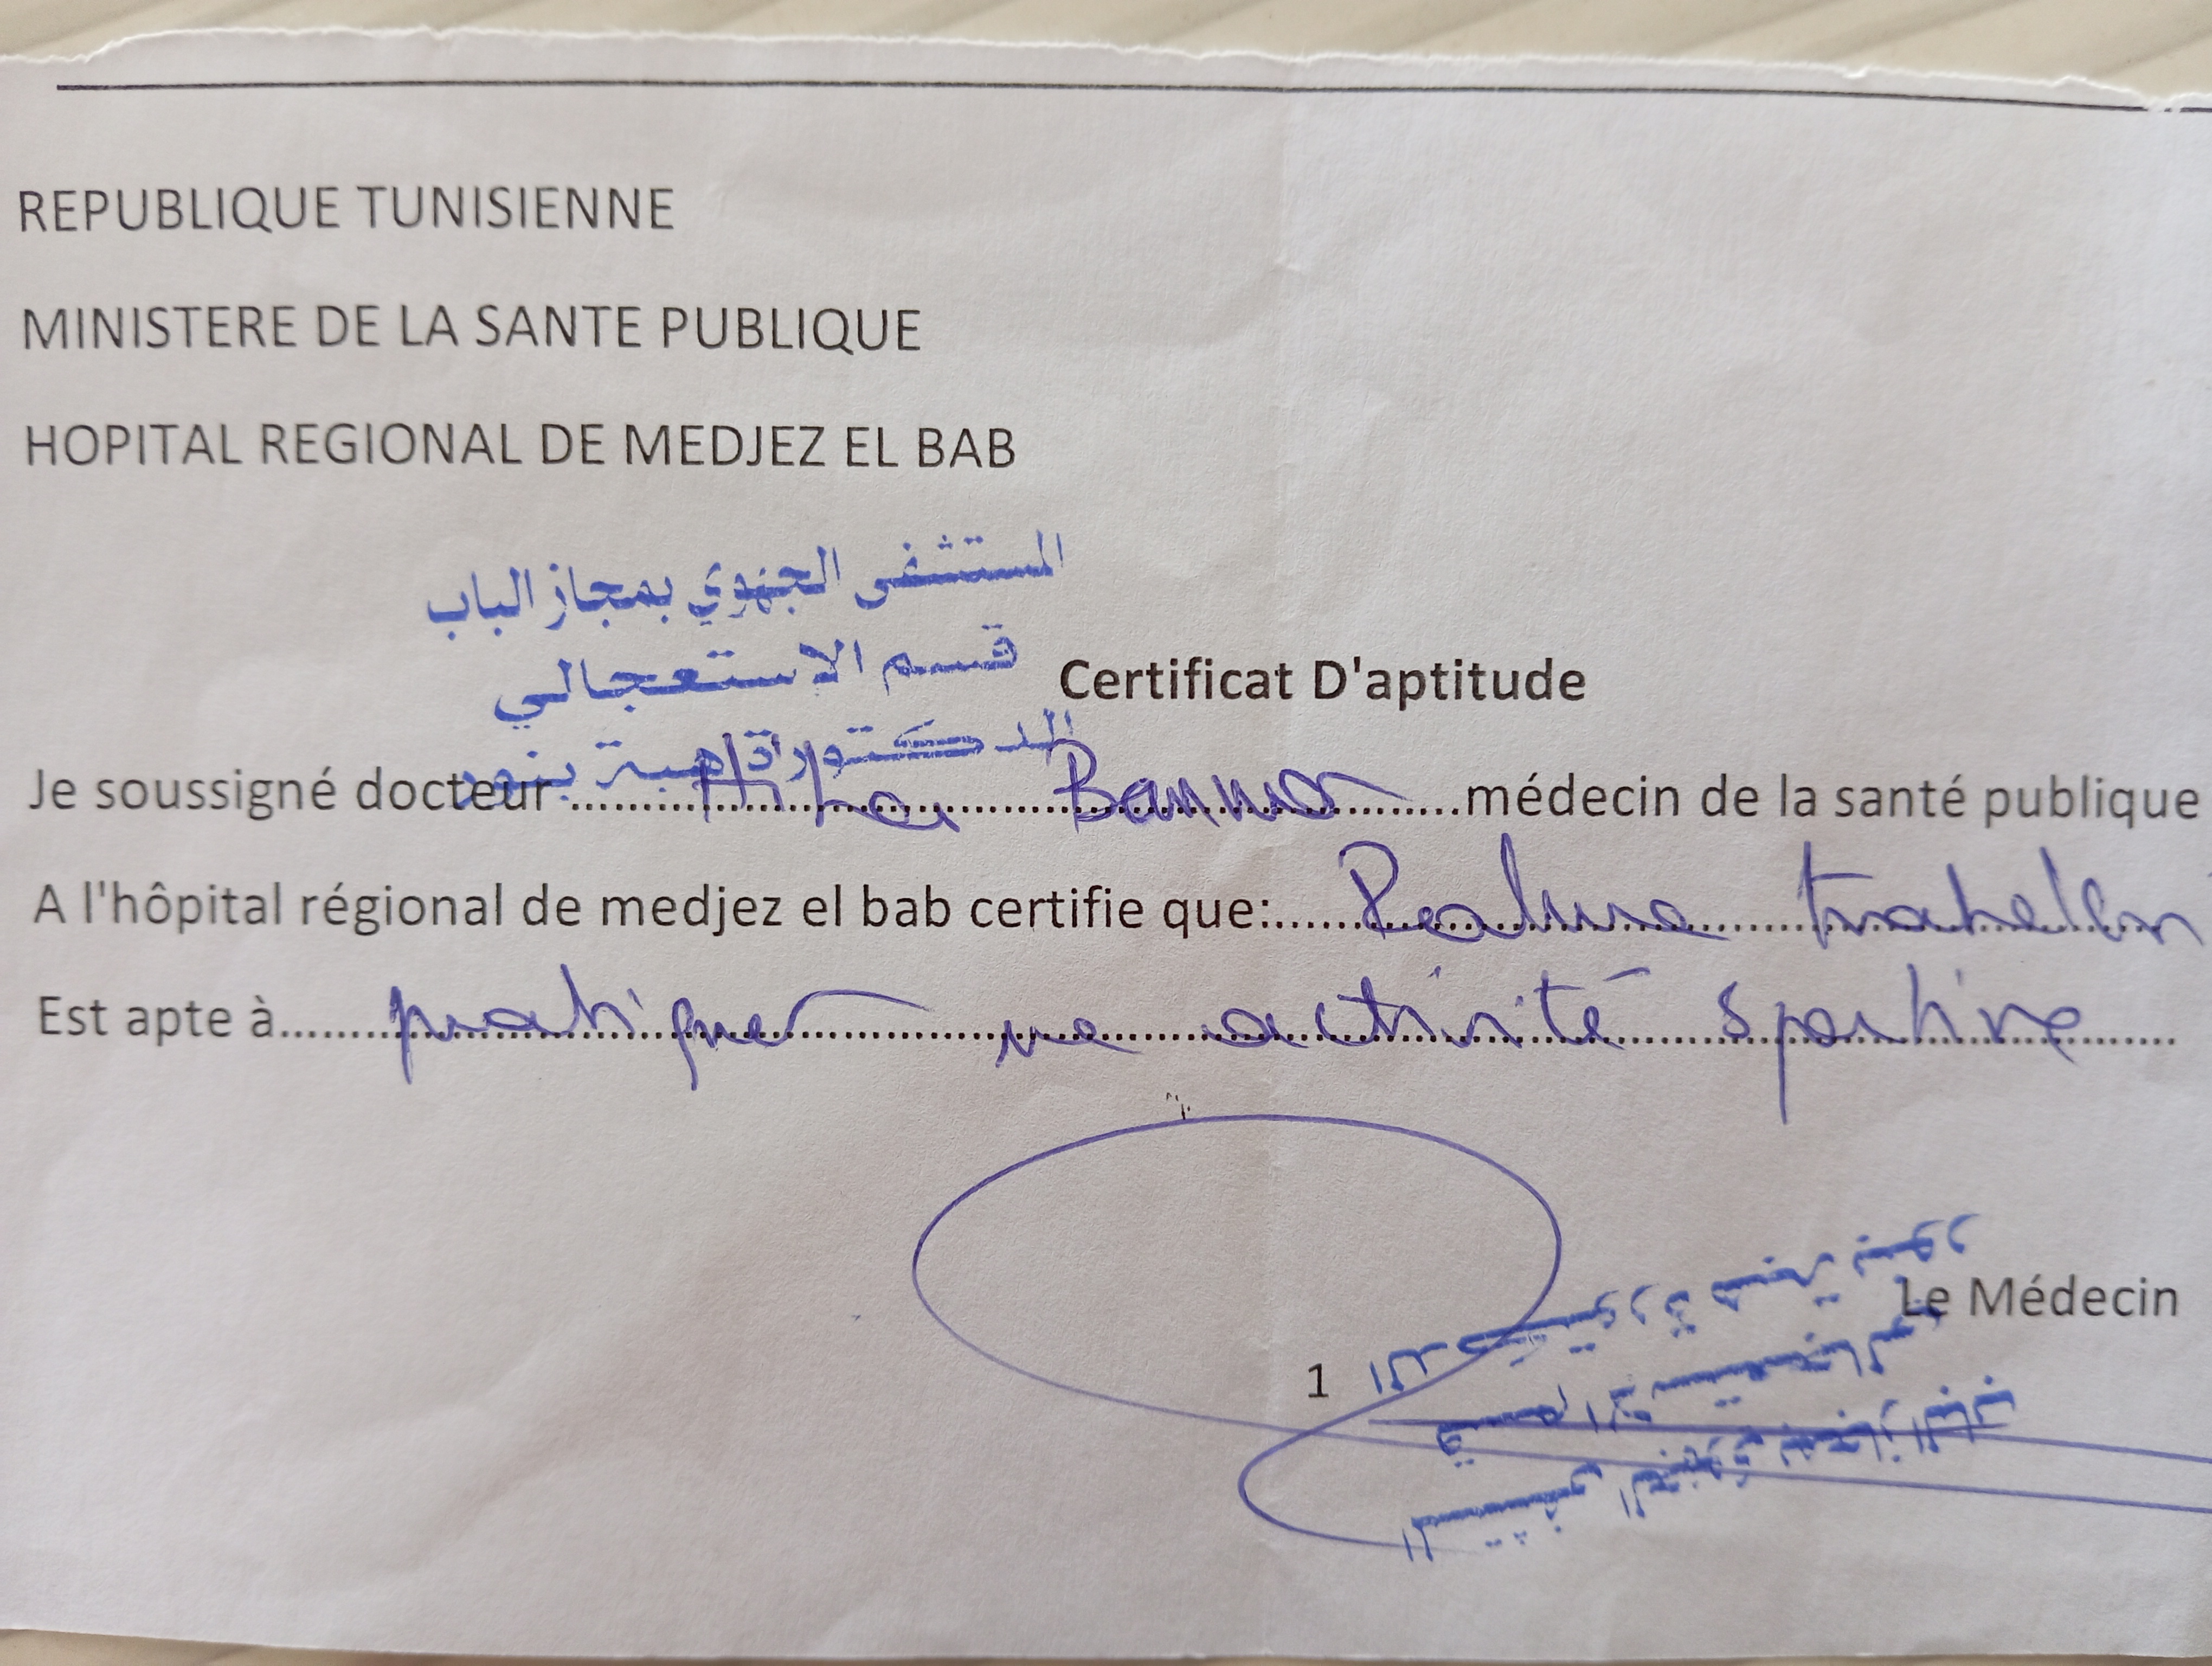 REPUBLIQUE TUNISIENNE
MINISTERE DE LA SANTE PUBLIQUE
HOPITAL REGIONAL DE MEDJEZ EL BAB
المستشفى الجهوي بمجاز الباب
قسم الاستعجالي
الدكتورة هبة بنور
Certificat D'aptitude
Je soussigné docteur Hiba Bannor médecin de la santé publique
A l'hôpital régional de medjez el bab certifie que:
Est apte à pratiquer une activité sportive
Le Médecin
1
الدكتورة هبة بنور
قسم الاستعجالي
المستشفى الجهوي بمجاز الباب